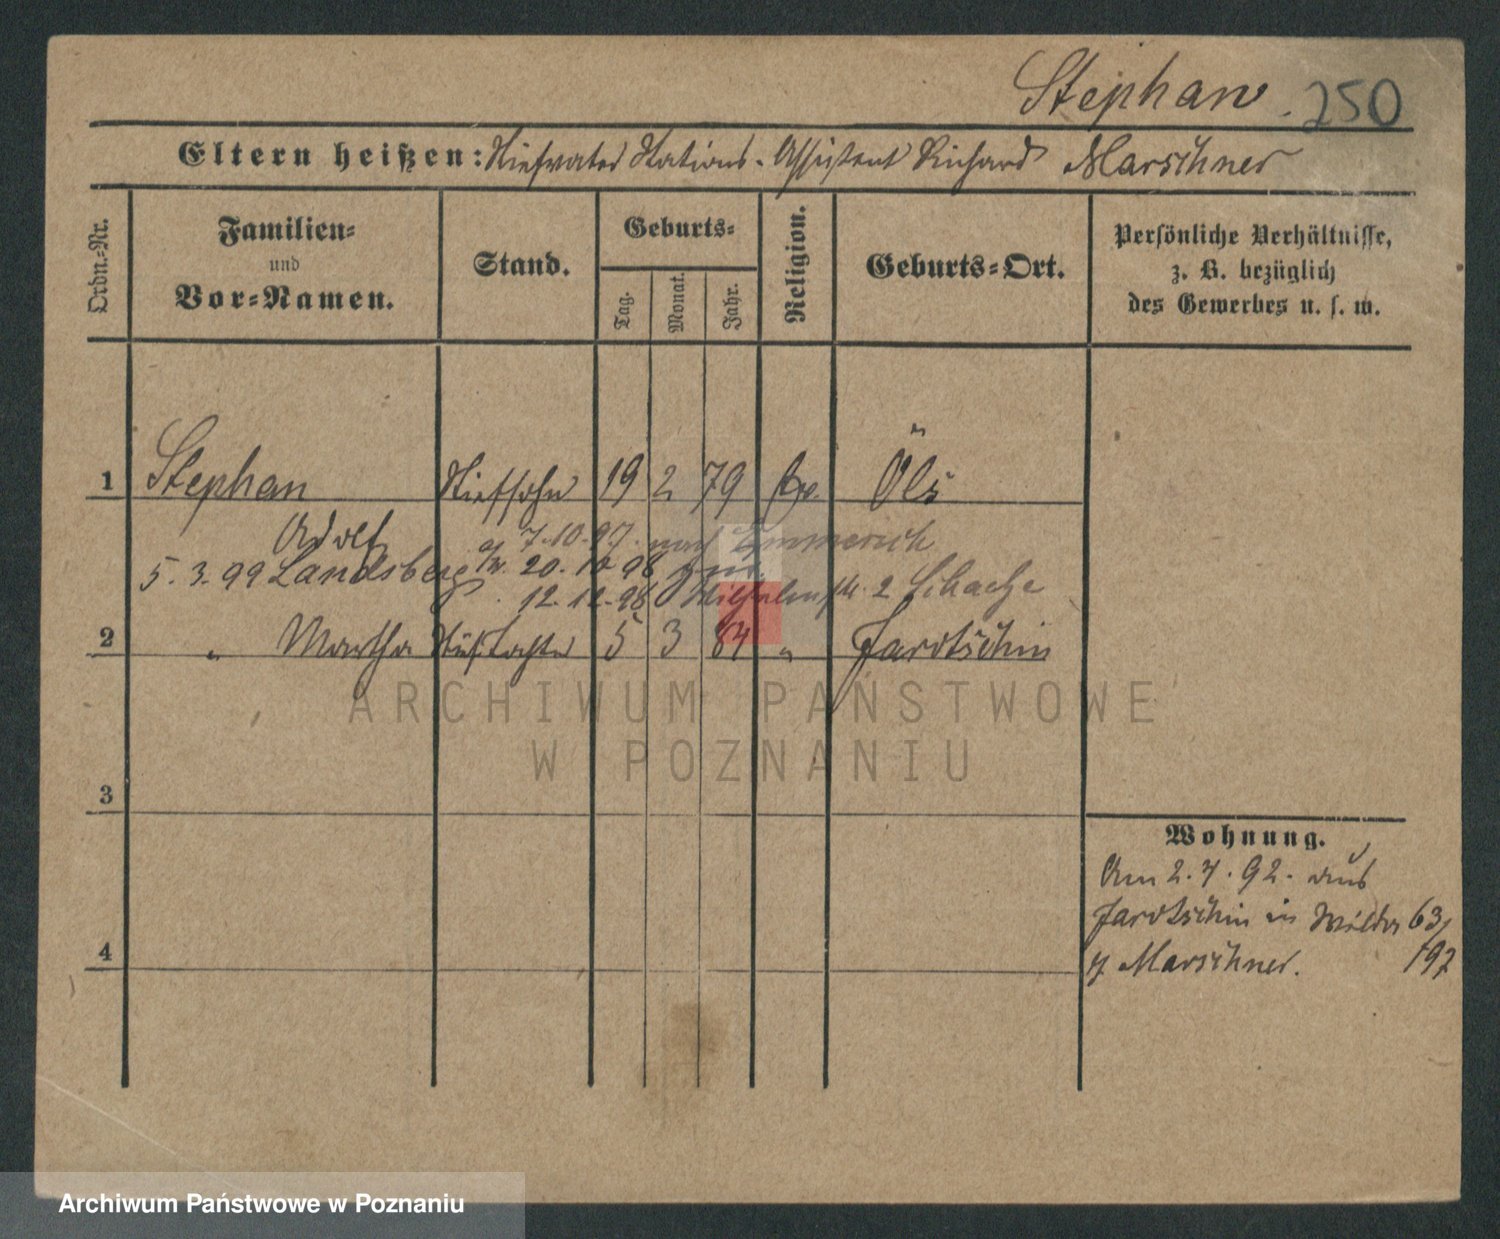 Stephan 250
Eltern heißen: Stiefvater Stations-Assistent Richard Marschner
Ordn.-Nr.
Familien-
und
Vor-Namen.
Stand.
Geburts-
Tag.
Monat.
Jahr.
Religion.
Geburts-Ort.
Persönliche Verhältnisse,
z. B. bezüglich
des Gewerbes u. s. w.
1 Stephan Stiefsohn 19 2 79 Öls
Adolf 7.10.97. nach Emmerich
5.3.99 Landsberg 20.10 98
12.12.98 2
2 " Martha Stieftochter 5 3 84 " Jarotschin
3
4
Wohnung.
Am 2.7.92. aus
Jarotschin in 63/
Marschner. 197
ARCHIWUM PAŃSTWOWE
W POZNANIU
Archiwum Państwowe w Poznaniu